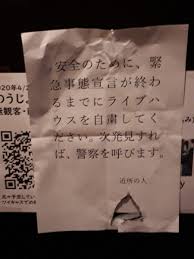 安全のために、緊
急事態宣言が終わ
るまでにライブハ
ウスを自粛してく
ださい。次発見すれ
ば、警察を呼びます。
近所の人
2020年4/2
のうじ、
無観客・